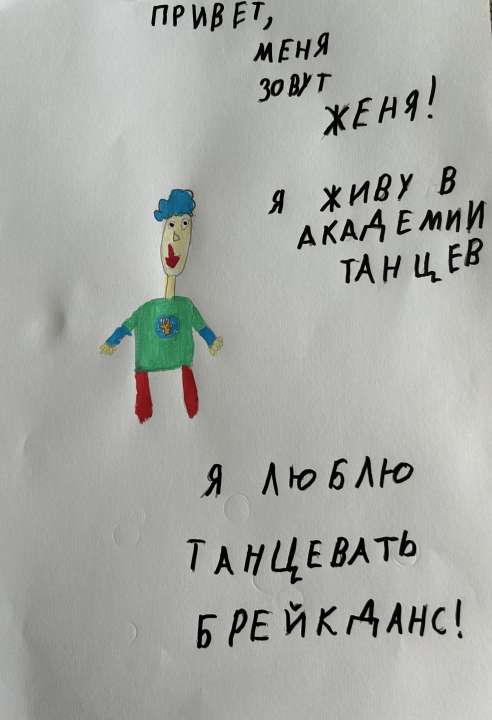 ПРИВЕТ,
МЕНЯ
ЗОВУТ
ЖЕНЯ!
Я ЖИВУ В
АКАДЕМИИ
ТАНЦЕВ
Я ЛЮБЛЮ
ТАНЦЕВАТЬ
БРЕЙКДАНС!